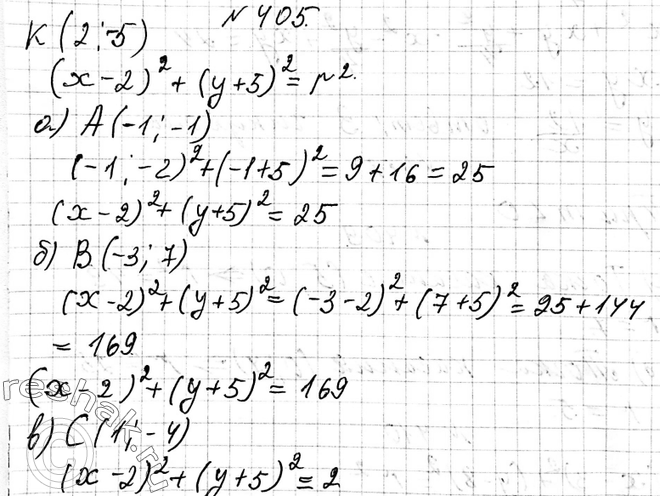 №405.
K (2; -5)
(x-2)² + (y+5)² = r².
а) A (-1; -1)
(-1; -2)² + (-1+5)² = 9 + 16 = 25
(x-2)² + (y+5)² = 25
б) B (-3; 7)
(x-2)² + (y+5)² = (-3-2)² + (7+5)² = 25 + 144
= 169
(x-2)² + (y+5)² = 169
в) C (1; -4)
(x-2)² + (y+5)² = 2
reshak.ru